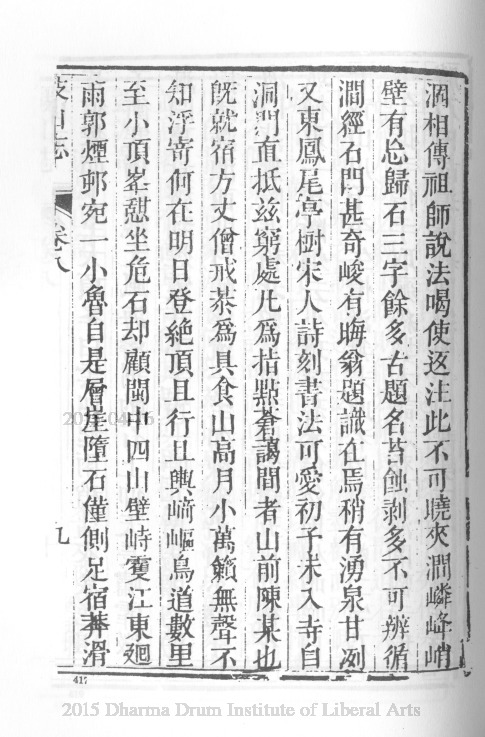 涸相傳祖師說法喝使返注此不可曉夾澗嶙峰峭
壁有忘歸石三字餘多古題名苔蝕剥多不可辨循
澗經石門甚奇峻有晦翁題識在焉稍有湧泉甘冽
又東鳳尾亭樹宋人詩刻書法可愛初予未入寺自
洞門直抵兹窮處凡爲指點蒼藹間者山前陳某也
旣就宿方丈僧戒茶爲具食山高月小萬籟無聲不
知浮嵜何在明日登絕頂且行且輿崎嶇鳥道數里
至小頂峯憇坐危石却顧閩中四山壁峙雙江東廻
雨郭煙邨宛一小魯自是層崖墮石僅側足宿莽滑
鼓山志 卷八 九
417
2015 Dharma Drum Institute of Liberal Arts